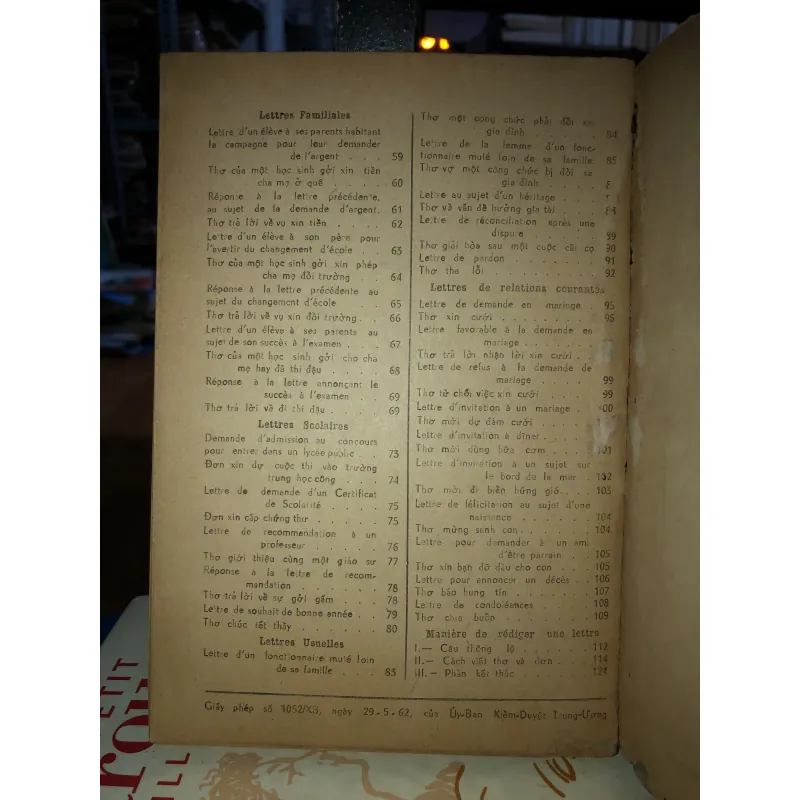 Lettres Familiales
Lettre d'un élève à ses parents habitant
la campagne pour leur demander
de l'argent . . . 59
Thơ của một học sinh gởi xin tiền
cha mẹ ở quê . . . . 60
Réponse à la lettre précédente,
au sujet de la demande d'argent. 61
Thơ trả lời về vụ xin tiền . . . . 62
Lettre d'un élève à son père pour
l'avertir du changement d'école . . 63
Thơ của một học sinh gởi xin phép
cha mẹ đổi trường . . . . 64
Réponse à la lettre précédente au
sujet du changement d'école 65
Thơ trả lời về vụ xin đổi trường . . 66
Lettre d'un élève à ses parents au
sujet de son succès à l'examen . . 67
Thơ của một học sinh gởi cho cha
mẹ hay đã thi đậu . . . 68
Réponse à la lettre annonçant le
succès à l'examen . . . 69
Thơ trả lời về đi thi đậu . . . . 69
Lettres Scolaires
Demande d'admission au concours
pour entrer dans un lycée public . . 73
Đơn xin dự cuộc thi vào trường
trung học công . . . . 74
Lettre de demande d'un Certificat
de Scolarité . . . . 75
Đơn xin cấp chứng thư . . . . 75
Lettre de recommandation à un
professeur . . . . 76
Thơ giới thiệu cùng một giáo sư 77
Réponse à la lettre de recom-
mandation . . . . . 78
Thơ trả lời về sự gởi gấm . . . 78
Lettre de souhait de bonne année . . 79
Thơ chúc tết thầy . . . . . 80
Lettres Usuelles
Lettre d'un fonctionnaire muté loin
de sa famille . . . . 83
Thơ một công chức phải đổi xa
gia đình . . . . . . 84
Lettre de la femme d'un fonc-
tionnaire muté loin de sa famille 85
Thơ vợ một công chức bị đổi xa
gia đình . . . .
Lettre au sujet d'un héritage . . .
Thơ về vấn đề hưởng gia tài . . .
Lettre de réconciliation après une
dispute . . . . 89
Thơ giải hòa sau một cuộc cãi cọ 90
Lettre de pardon . . . . . 91
Thơ tha lỗi . . . . . . 92
Lettres de relations courantes
Lettre de demande en mariage . . 95
Thơ xin cưới . . . . . . 96
Lettre favorable à la demande en
mariage . . . .
Thơ trả lời nhận lời xin cưới . .
Lettre de refus à la demande de
mariage . . . . 99
Thơ từ chối việc xin cưới . . . 99
Lettre d'invitation à un mariage . . 100
Thơ mời dự đám cưới . . . .
Lettre d'invitation à dîner . . . .
Thơ mời dùng bữa cơm . . . . 101
Lettre d'invitation à un sujet sur
le bord de la mer . . 102
Thơ mời đi biển hứng gió . . . . 103
Lettre de félicitation au sujet d'une
naissance . . . . . 104
Thơ mừng sanh con . . . . . 104
Lettre pour demander à un ami
d'être parrain . . . 105
Thơ xin bạn đỡ đầu cho con . . . 105
Lettre pour annoncer un décès . . 106
Thơ báo hung tín . . . . . 107
Lettre de condoléances . . . . 108
Thơ chia buồn . . . . . . 109
Manière de rédiger une lettre
I.— Câu thông lệ . . . . . . 112
II.— Cách viết thơ và đơn . . . . 114
III.— Phần kết thúc . . . . . 124
Giấy phép số 1052/XB, ngày 29-5-62, của Ủy-Ban Kiểm-Duyệt Trung-Ương